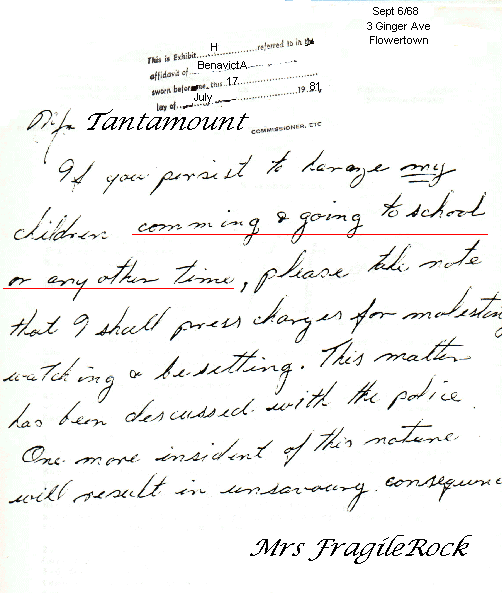 Sept 6/68
3 Ginger Ave
Flowertown
This is Exhibit H referred to in the
affidavit of BenavictA
sworn before me, this 17
day of July 1981
COMMISSIONER, ETC
Tantamount
If you persist to haraze my
children comming & going to school
or any other time, please take note
that I shall press charges for molesting
watching & besetting. This matter
has been descussed with the police
One more insident of this nature
will result in unsavoury consequenc
Mrs FragileRock